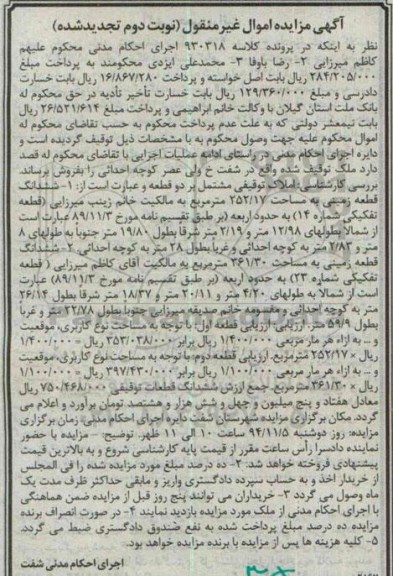 آگهی مزایده اموال غیرمنقول (نوبت دوم تجدیدشده)
نظر به اینکه در پرونده کلاسه ۹۳۰۳۱۸ اجرای احکام مدنی محکوم علیهم
کاظم میرزایی ۲- رضا باوفا ۳- محمدعلی ایزدی محکومند به پرداخت مبلغ
۲۸۴/۲۰۵/۰۰۰ ریال بابت اصل خواسته و پرداخت ۱۶/۸۶۷/۲۸۰ ریال بابت خسارت
دادرسی و مبلغ ۱۲۹/۳۶۰/۰۰۰ ریال بابت خسارت تأخیر تأدیه در حق محکوم له
بانک ملت استان گیلان با وکالت خانم ابراهیمی و پرداخت مبلغ ۲۶/۵۲۱/۶۱۴ ریال
بابت نیمعشر دولتی که به علت عدم پرداخت محکوم به حسب تقاضای محکوم له
اموال محکوم علیه جهت وصول محکوم به با مشخصات ذیل توقیف گردیده است و
دایره اجرای احکام مدنی در راستای ادامه عملیات اجرایی با تقاضای محکوم له قصد
دارد ملک توقیف شده واقع در شفت خ ولی عصر کوچه احداثی را بفروش برساند.
بررسی کارشناسی املاک توقیفی مشتمل بر دو قطعه و عبارت است از: ۱- ششدانگ
قطعه زمینی به مساحت ۲۵۲/۱۷ مترمربع به مالکیت خانم زینب میرزایی (قطعه
تفکیکی شماره ۱۴) به حدود اربعه (بر طبق تقسیم نامه مورخ ۸۹/۱۱/۳) عبارت است
از شمالاً بطولهای ۱۲/۹۸ متر و ۲/۱۹ متر شرقاً بطول ۱۹/۸۰ متر جنوباً به طولهای ۸
متر و ۲/۸۳ متر به کوچه احداثی و غرباً بطول ۲۸ متر به کوچه احداثی ۲- ششدانگ
قطعه زمینی به مساحت ۳۶۱/۳۰ مترمربع به مالکیت آقای کاظم میرزایی (قطعه
تفکیکی شماره ۲۳) به حدود اربعه (بر طبق تقسیم نامه مورخ ۸۹/۱۱/۳) عبارت
است از شمالاً به طولهای ۴/۲۰ متر و ۲۰/۱۱ متر و ۱۸/۳۷ متر شرقاً بطول ۲۶/۱۴
متر به کوچه احداثی و مغسوبه خانم صدیقه میرزایی جنوباً بطول ۲۲/۷۸ متر و غرباً
بطول ۵۹/۹ متر. ارزیابی: ارزیابی قطعه اول: با توجه به مساحت نوع کاربری، موقعیت
و ... به ازاء هر متر مربعی ۱/۴۰۰/۰۰۰ ریال برابر ۳۵۳/۰۳۸/۰۰۰ ریال = ۱/۴۰۰/۰۰۰
ریال × ۲۵۲/۱۷ مترمربع. ارزیابی قطعه دوم: با توجه به مساحت نوع کاربری، موقعیت
و ... به ازاء هر متر مربعی ۱/۱۰۰/۰۰۰ ریال برابر ۳۹۷/۴۳۰/۰۰۰ ریال = ۱/۱۰۰/۰۰۰
ریال × ۳۶۱/۳۰ مترمربع. جمع ارزش ششدانگ قطعات توقیفی ۷۵۰/۴۶۸/۰۰۰ ریال
معادل هفتاد و پنج میلیون و چهل و شش هزار و هشتصد تومان برآورد و اعلام می
گردد. مکان برگزاری مزایده شهرستان شفت دایره اجرای احکام مدنی، زمان برگزاری
مزایده: روز دوشنبه ۹۴/۱۱/۵ ساعت ۱۰ الی ۱۱ ظهر. توضیح: - مزایده با حضور
نماینده دادسرا رأس ساعت مقرر از قیمت پایه کارشناسی شروع و به بالاترین قیمت
پیشنهادی فروخته خواهد شد. ۲- ده درصد مبلغ مورد مزایده شده را فی المجلس
از خریدار اخذ و به حساب سپرده دادگستری واریز و مابقی حداکثر ظرف مدت یک
ماه وصول می گردد ۳- خریداران می توانند پنج روز قبل از مزایده ضمن هماهنگی
با اجرای احکام مدنی از ملک مورد مزایده بازدید نمایند ۴- در صورت انصراف برنده
مزایده ده درصد مبلغ پرداخت شده به نفع صندوق دادگستری ضبط می گردد.
۵- کلیه هزینه ها پس از مزایده با برنده مزایده خواهد بود.
اجرای احکام مدنی شفت